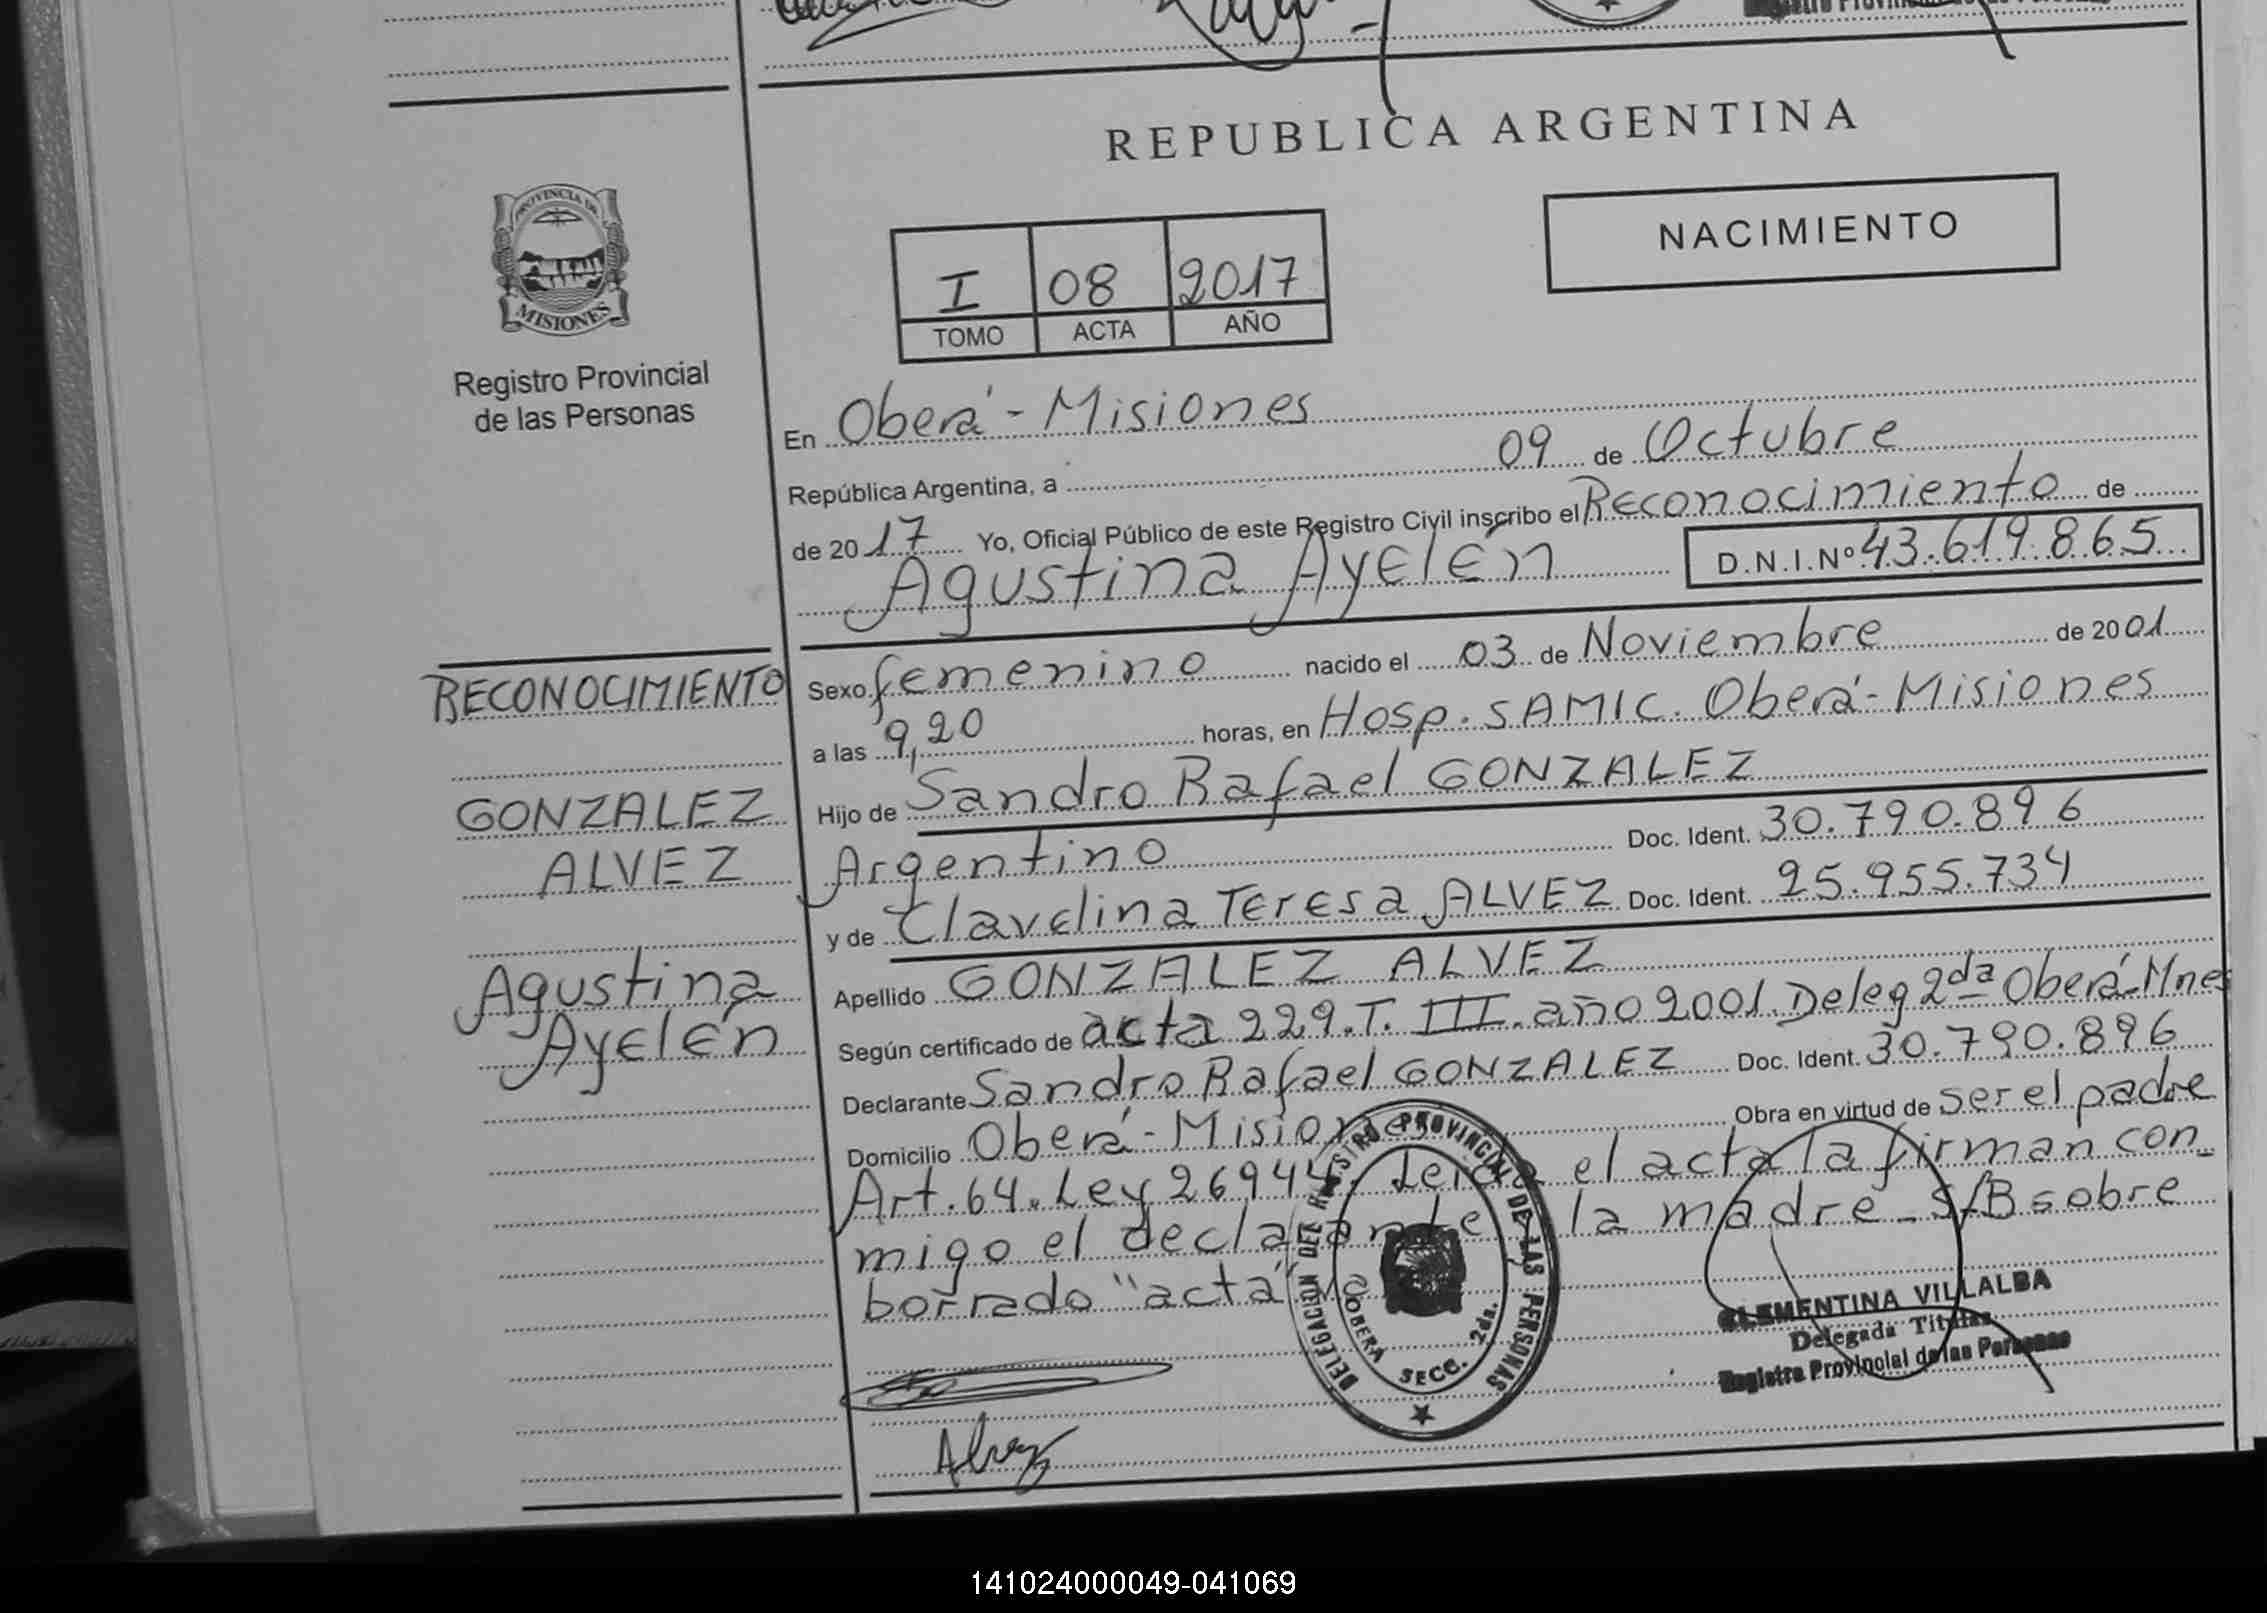 REPUBLICA ARGENTINA
NACIMIENTO
PROVINCIA DE
MISIONES
Registro Provincial
de las Personas
I 08 2017
TOMO ACTA AÑO
En Oberá - Misiones
República Argentina, a 09 de Octubre
de 2017 Yo, Oficial Público de este Registro Civil inscribo el Reconocimiento de
Agustina Ayelén D.N.I.Nº 43.619.865
RECONOCIMIENTO
GONZALEZ
ALVEZ
Agustina
Ayelén
Sexo femenino nacido el 03 de Noviembre de 2001
a las 9,20 horas, en Hosp. SAMIC. Oberá - Misiones
Hijo de Sandro Rafael GONZALEZ
Argentino Doc. Ident. 30.790.896
y de Clavelina Teresa ALVEZ Doc. Ident. 25.955.734
Apellido GONZALEZ ALVEZ
Según certificado de acta 229. T. III. año 2001. Deleg 2da Oberá-Mnes
Declarante Sandro Rafael GONZALEZ Doc. Ident. 30.790.896
Domicilio Oberá - Misiones Obra en virtud de ser el padre
Art. 64. Ley 26944. Leida el acta la firman con
migo el declarante y la madre - S/B sobre
borrado "acta" Vale
DELEGACION DEL REGISTRO PROVINCIAL DE LAS PERSONAS
OBERA SECC. 2da.
CLEMENTINA VILLALBA
Delegada Titular
Registro Provincial de las Personas
Alvez
141024000049-041069